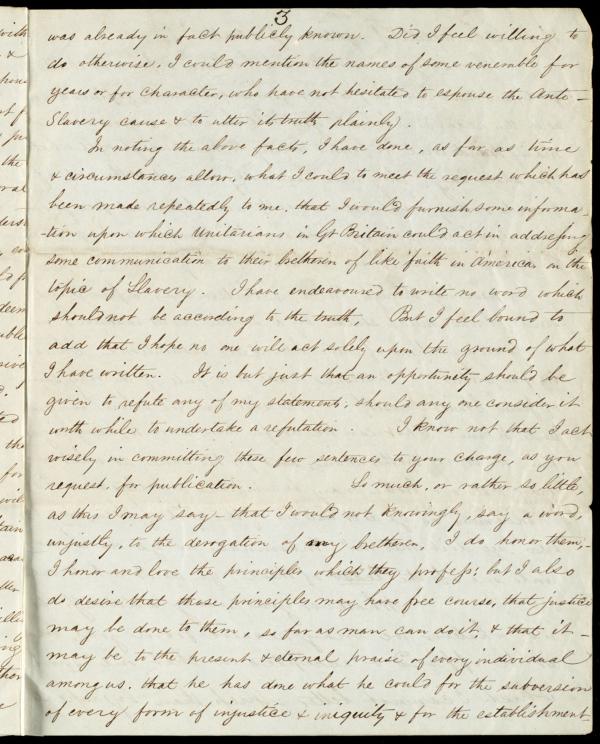 3
was already in fact publicly known. Did I feel willing to
do otherwise, I could mention the names of some venerable for
years or for character, who have not hesitated to espouse the Anti-
Slavery cause & to utter its truth plainly.
In noting the above facts, I have done, as far as time
& circumstances allow, what I could to meet the request which has
been made repeatedly to me, that I would furnish some informa-
-tion upon which Unitarians in Gt Britain could act in addressing
some communication to their brethren of like faith in America, on the
topic of Slavery. I have endeavoured to write no word which
should not be according to the truth, But I feel bound to
add that I hope no one will act solely upon the ground of what
I have written. It is but just that an opportunity should be
given to refute any of my statements, should any one consider it
worth while to undertake a refutation. I know not that I act
wisely in committing these few sentences to your charge, as you
request, for publication. So much, or rather so little,
as this I may say - that I would not knowingly, say a word,
unjustly, to the derogation of my brethren, I do honor them,-
I honor and love the principles which they profess; but I also
do desire that those principles may have free course, that justice
may be done to them, so far as man can do it, & that it -
may be to the present & eternal praise of every individual
among us, that he has done what he could for the subversion
of every form of injustice & iniquity & for the establishment